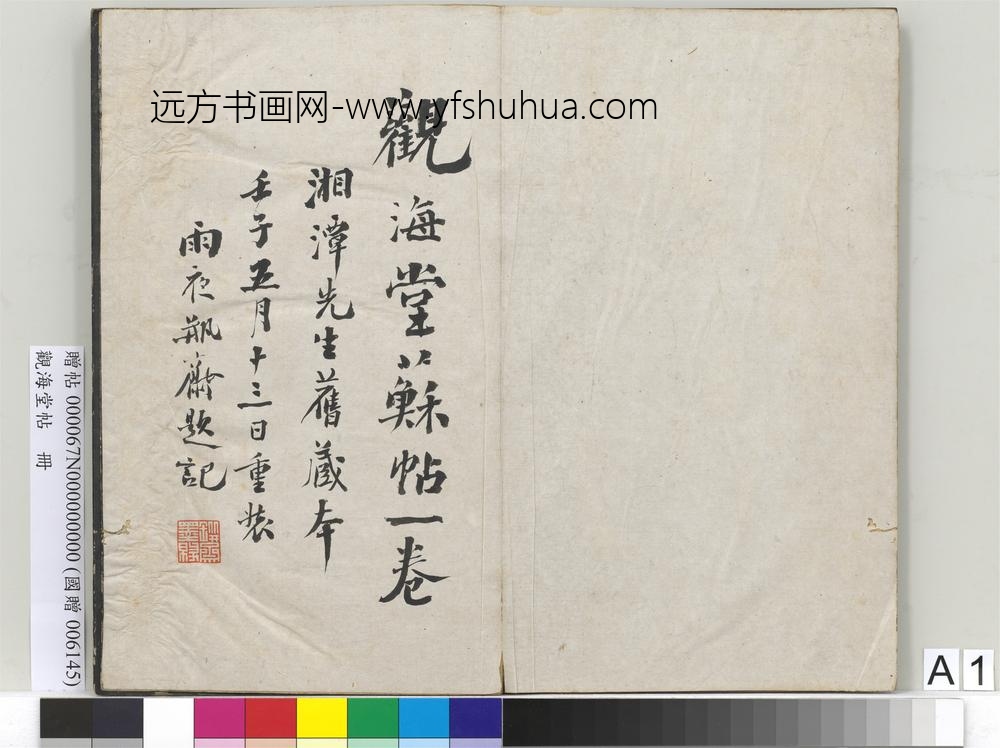 远方书画网-www.yfshuhua.com
觀海堂蘇帖一卷
湘潭先生舊藏本
壬子五月十三日重裝
雨夜瓶齋題記
贈帖 000067N000000000 (國贈 006145)
觀海堂帖 冊
A 1